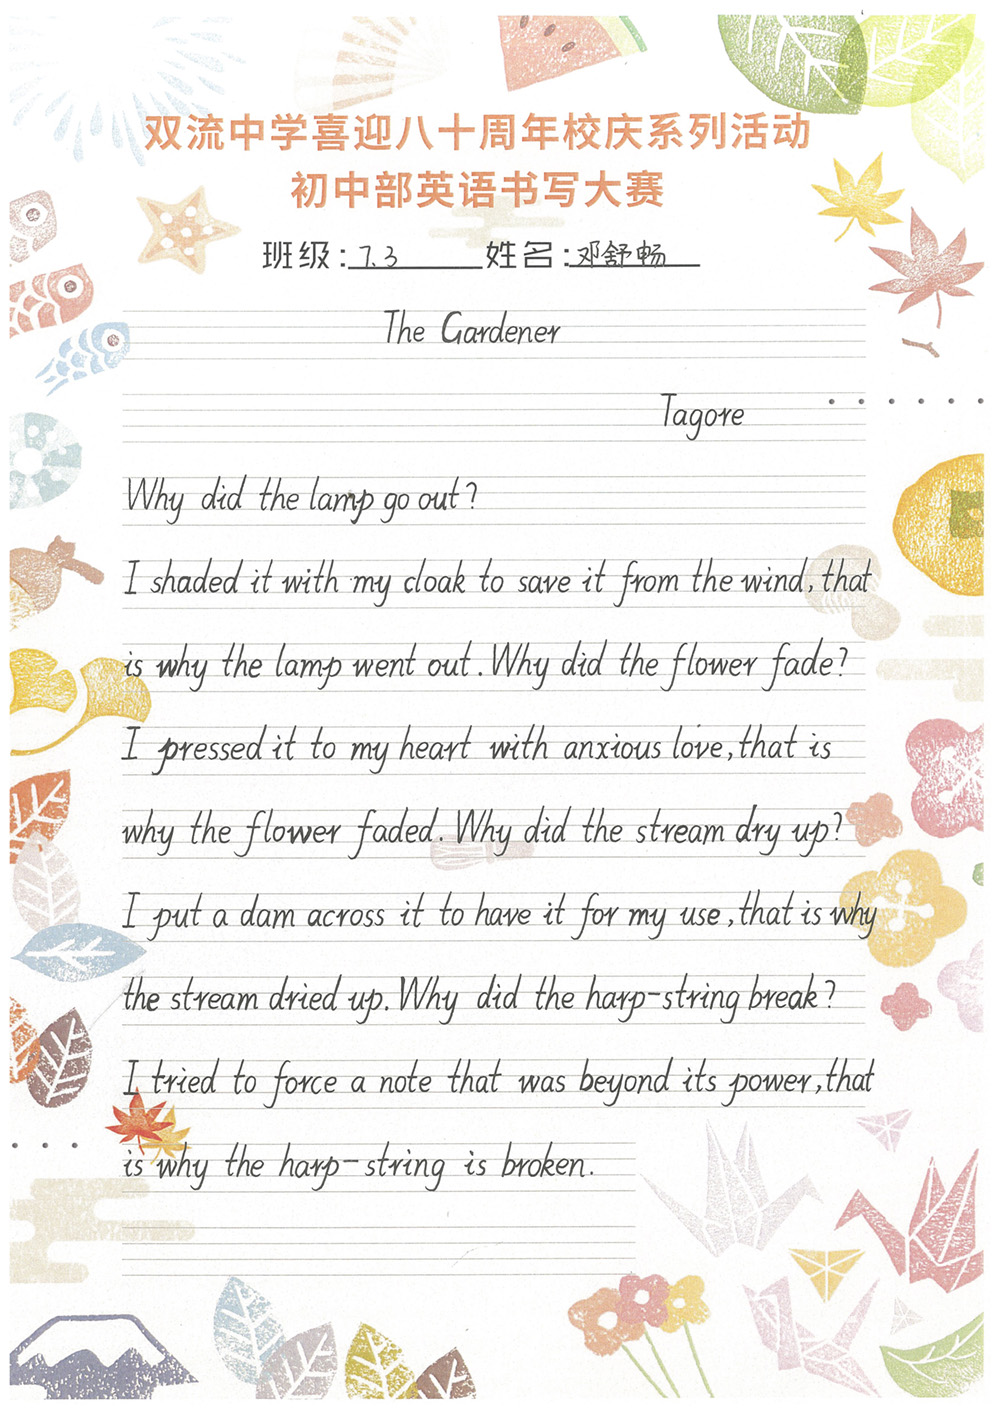 双流中学喜迎八十周年校庆系列活动
初中部英语书写大赛
班级：7.3 姓名：邓舒畅
The Gardener
Tagore
Why did the lamp go out?
I shaded it with my cloak to save it from the wind, that
is why the lamp went out. Why did the flower fade?
I pressed it to my heart with anxious love, that is
why the flower faded. Why did the stream dry up?
I put a dam across it to have it for my use, that is why
the stream dried up. Why did the harp-string break?
I tried to force a note that was beyond its power, that
is why the harp-string is broken.